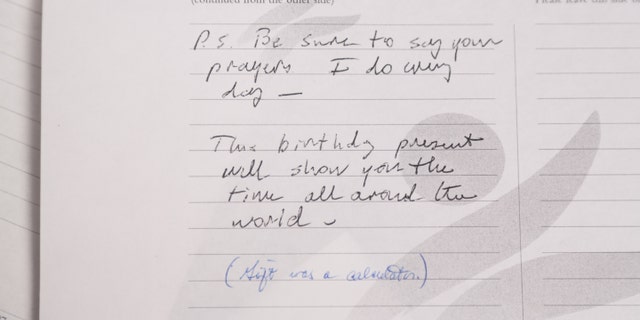 (continued from the other side)
Please leave this side
P.S. Be sure to say your
prayers I do every
day —
This birthday present
will show you the
time all around the
world –
(Gift was a calculator.)